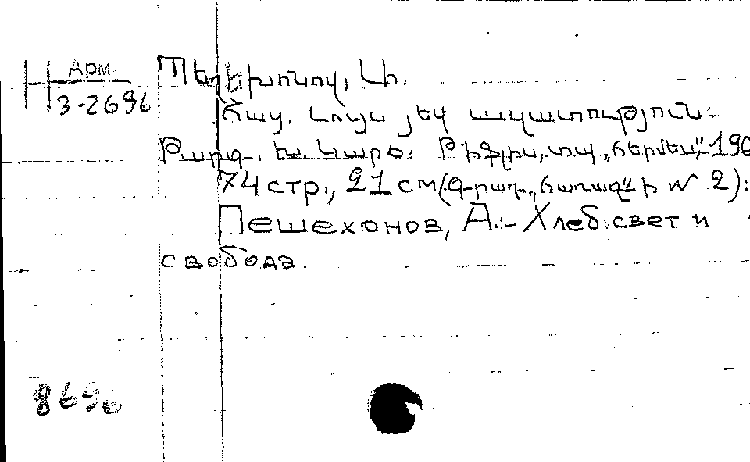 Арм.
H 3-2696
Պեշեխոնով, Ա.
Հաց, Լույս յեվ ազատություն:
Թարգ. Խ. Կարօ: Թիֆլիս, տպ. „Հերմես", 190
74 стр., 21 см (Գ-րադ. „Ճառագ" № 2):
Пешехонов, А. – Хлеб. свет и
свобода.
8696